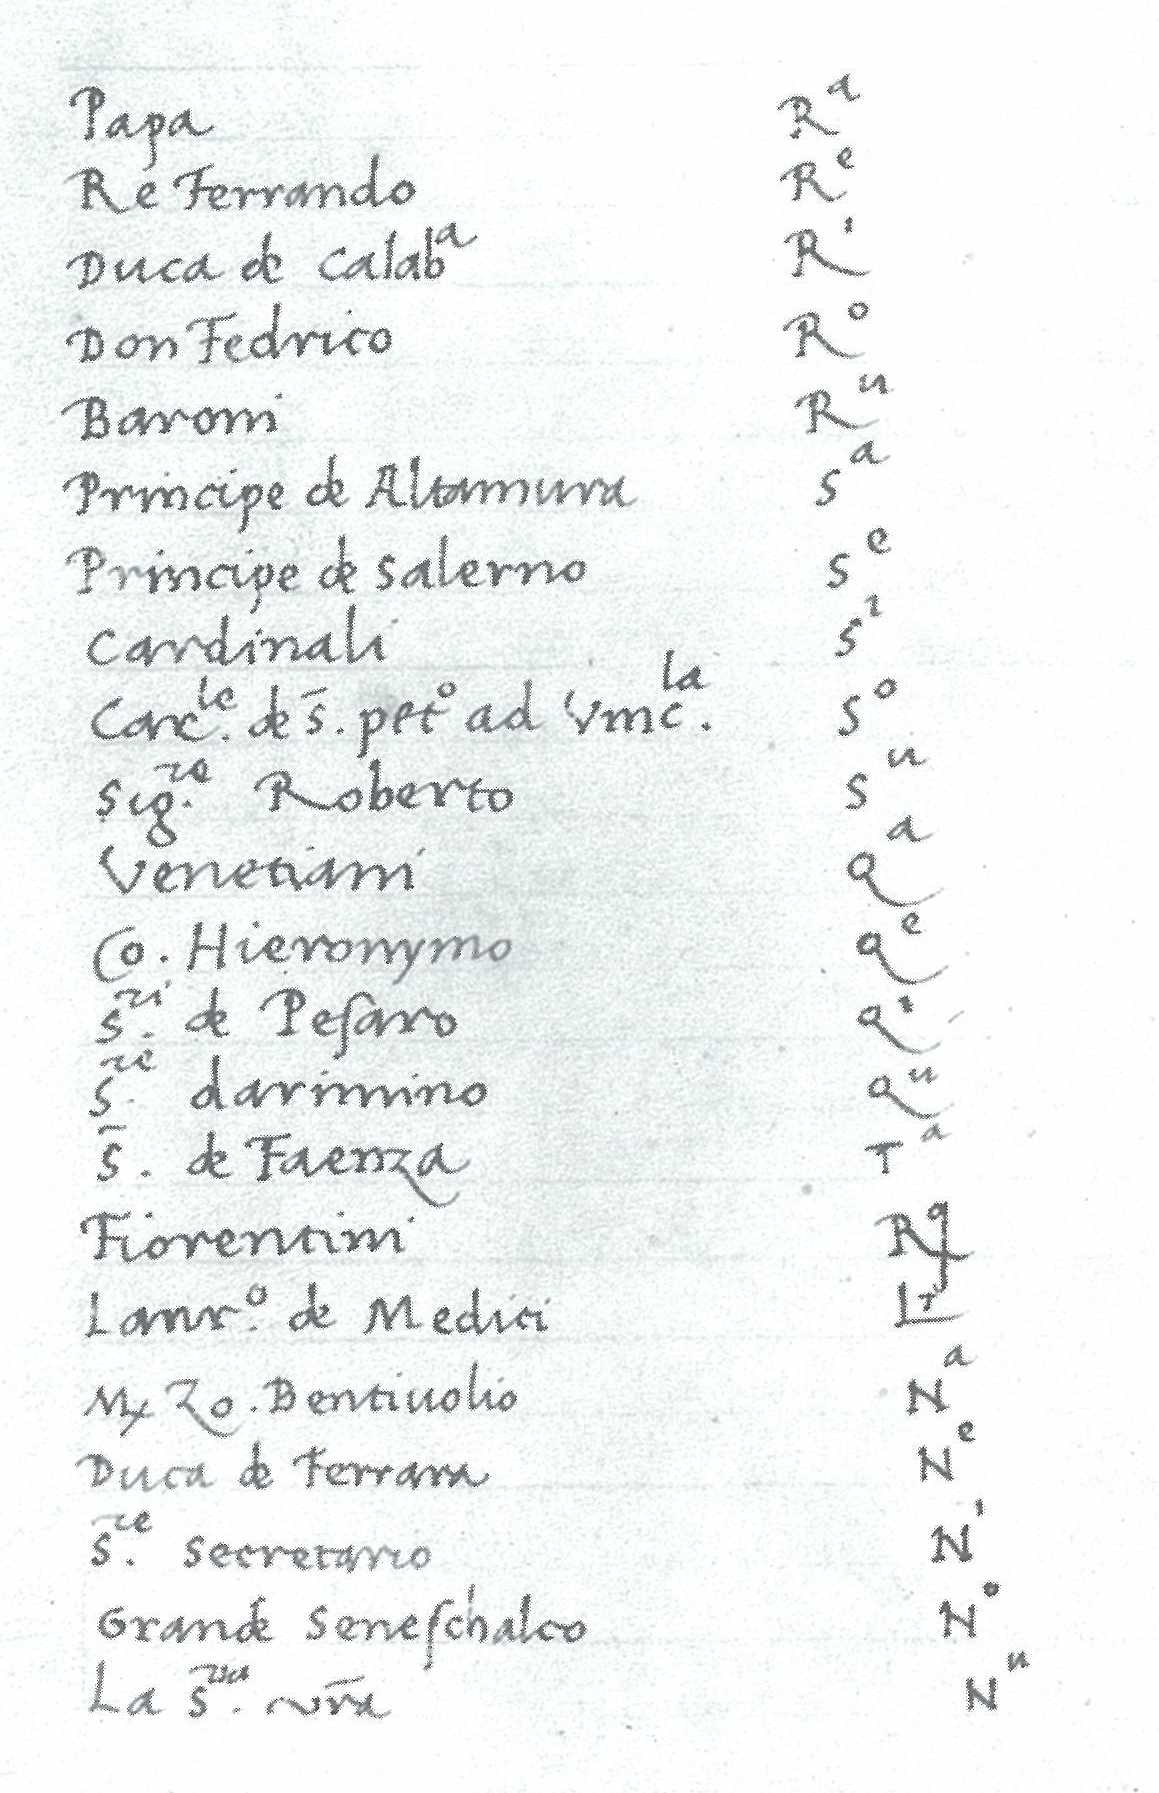 Papa Rᵃ
Re Ferrando Rᵉ
Duca de Calabᵃ Rⁱ
Don Fedrico Rᵒ
Baroni Rᵘ
Principe de Altamura Sᵃ
Principe de Salerno Sᵉ
Cardinali Sⁱ
Carcˡᵉ. de s̄. petᵒ ad Vmcˡᵃ. Sᵒ
Sigʳᵉ. Roberto Sᵘ
Venetiani Qᵃ
Co. Hieronymo Qᵉ
Sʳⁱ. de Peſaro Qⁱ
Sʳᵉ. darimino Qᵘ
S̄. de Faenza Tᵃ
Fiorentini
Laurᵒ. de Medici
Zo. Bentiuolio Nᵃ
Duca de Ferrara Nᵉ
Sʳᵉ. Secretario Nⁱ
Grande Seneſchalco Nᵒ
La Sʳⁱᵃ. vr̄a Nᵘ